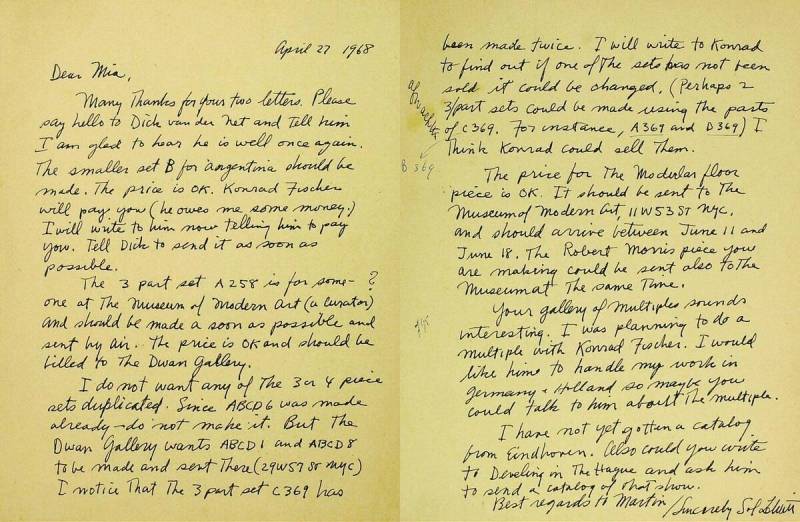 April 27 1968
Dear Mia,
Many Thanks for your two letters. Please
say hello to Dick van der Net and Tell him
I am glad to hear he is well once again.
The smaller set B for argentina should be
made. The price is OK. Konrad Fischer
will pay you (he owes me some money.)
I will write to him now telling him to pay
you. Tell Dick to send it as soon as
possible.
The 3 part set A258 is for some- ?
one at The Museum of Modern Art (a curator)
and should be made a soon as possible and
sent by air. The price is OK and should be
billed to The Dwan Gallery.
I do not want any of The 3 or 4 piece
sets duplicated. Since ABCD6 was made
already - do not make it. But The
Dwan Gallery wants ABCD1 and ABCD8
to be made and sent There (29W57 St NYC)
I notice That The 3 part set C369 has
been made twice. I will write to Konrad
to find out if one of The sets has not been
sold it could be changed. (Perhaps 2
3/part sets could be made using the parts
of C369. For instance, A369 and D369) I
Think Konrad could sell Them.
B 369
The price for The Modular floor
piece is OK. It should be sent to The
Museum of Modern Art, 11W53 St NYC.
and should arrive between June 11 and
June 18. The Robert Morris piece you
are making could be sent also to The
Museum at The same Time.
Your gallery of multiples sounds
interesting. I was planning to do a
multiple with Konrad Fischer. I would
like him to handle my work in
Germany + Holland so maybe you
could talk to him about The multiple.
I have not yet gotten a catalog
from Eindhoven. Also could you write
to in The Hague and ask him
to send a catalog of that show.
Best regards to Martin / Sincerely Sol LeWitt